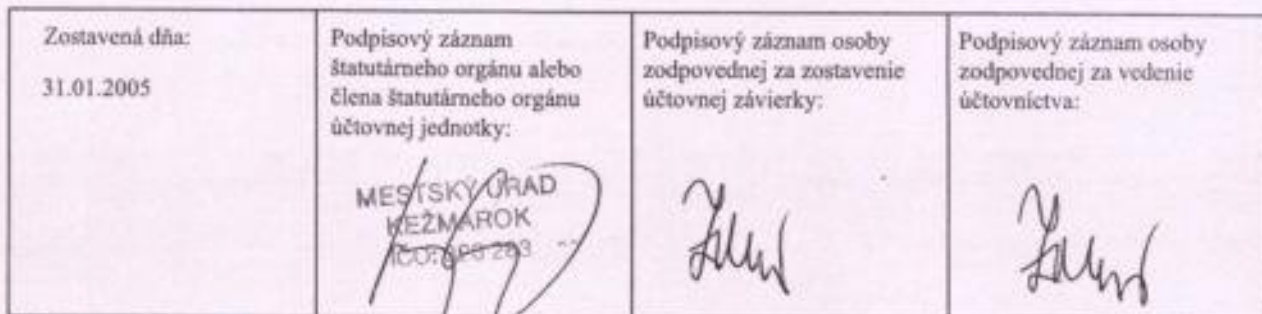 Zostavená dňa:
31.01.2005
Podpisový záznam
štatutárneho orgánu alebo
člena štatutárneho orgánu
účtovnej jednotky:
MESTSKÝ ÚRAD
KEŽMAROK
IČO:
Podpisový záznam osoby
zodpovednej za zostavenie
účtovnej závierky:
Podpisový záznam osoby
zodpovednej za vedenie
účtovníctva: